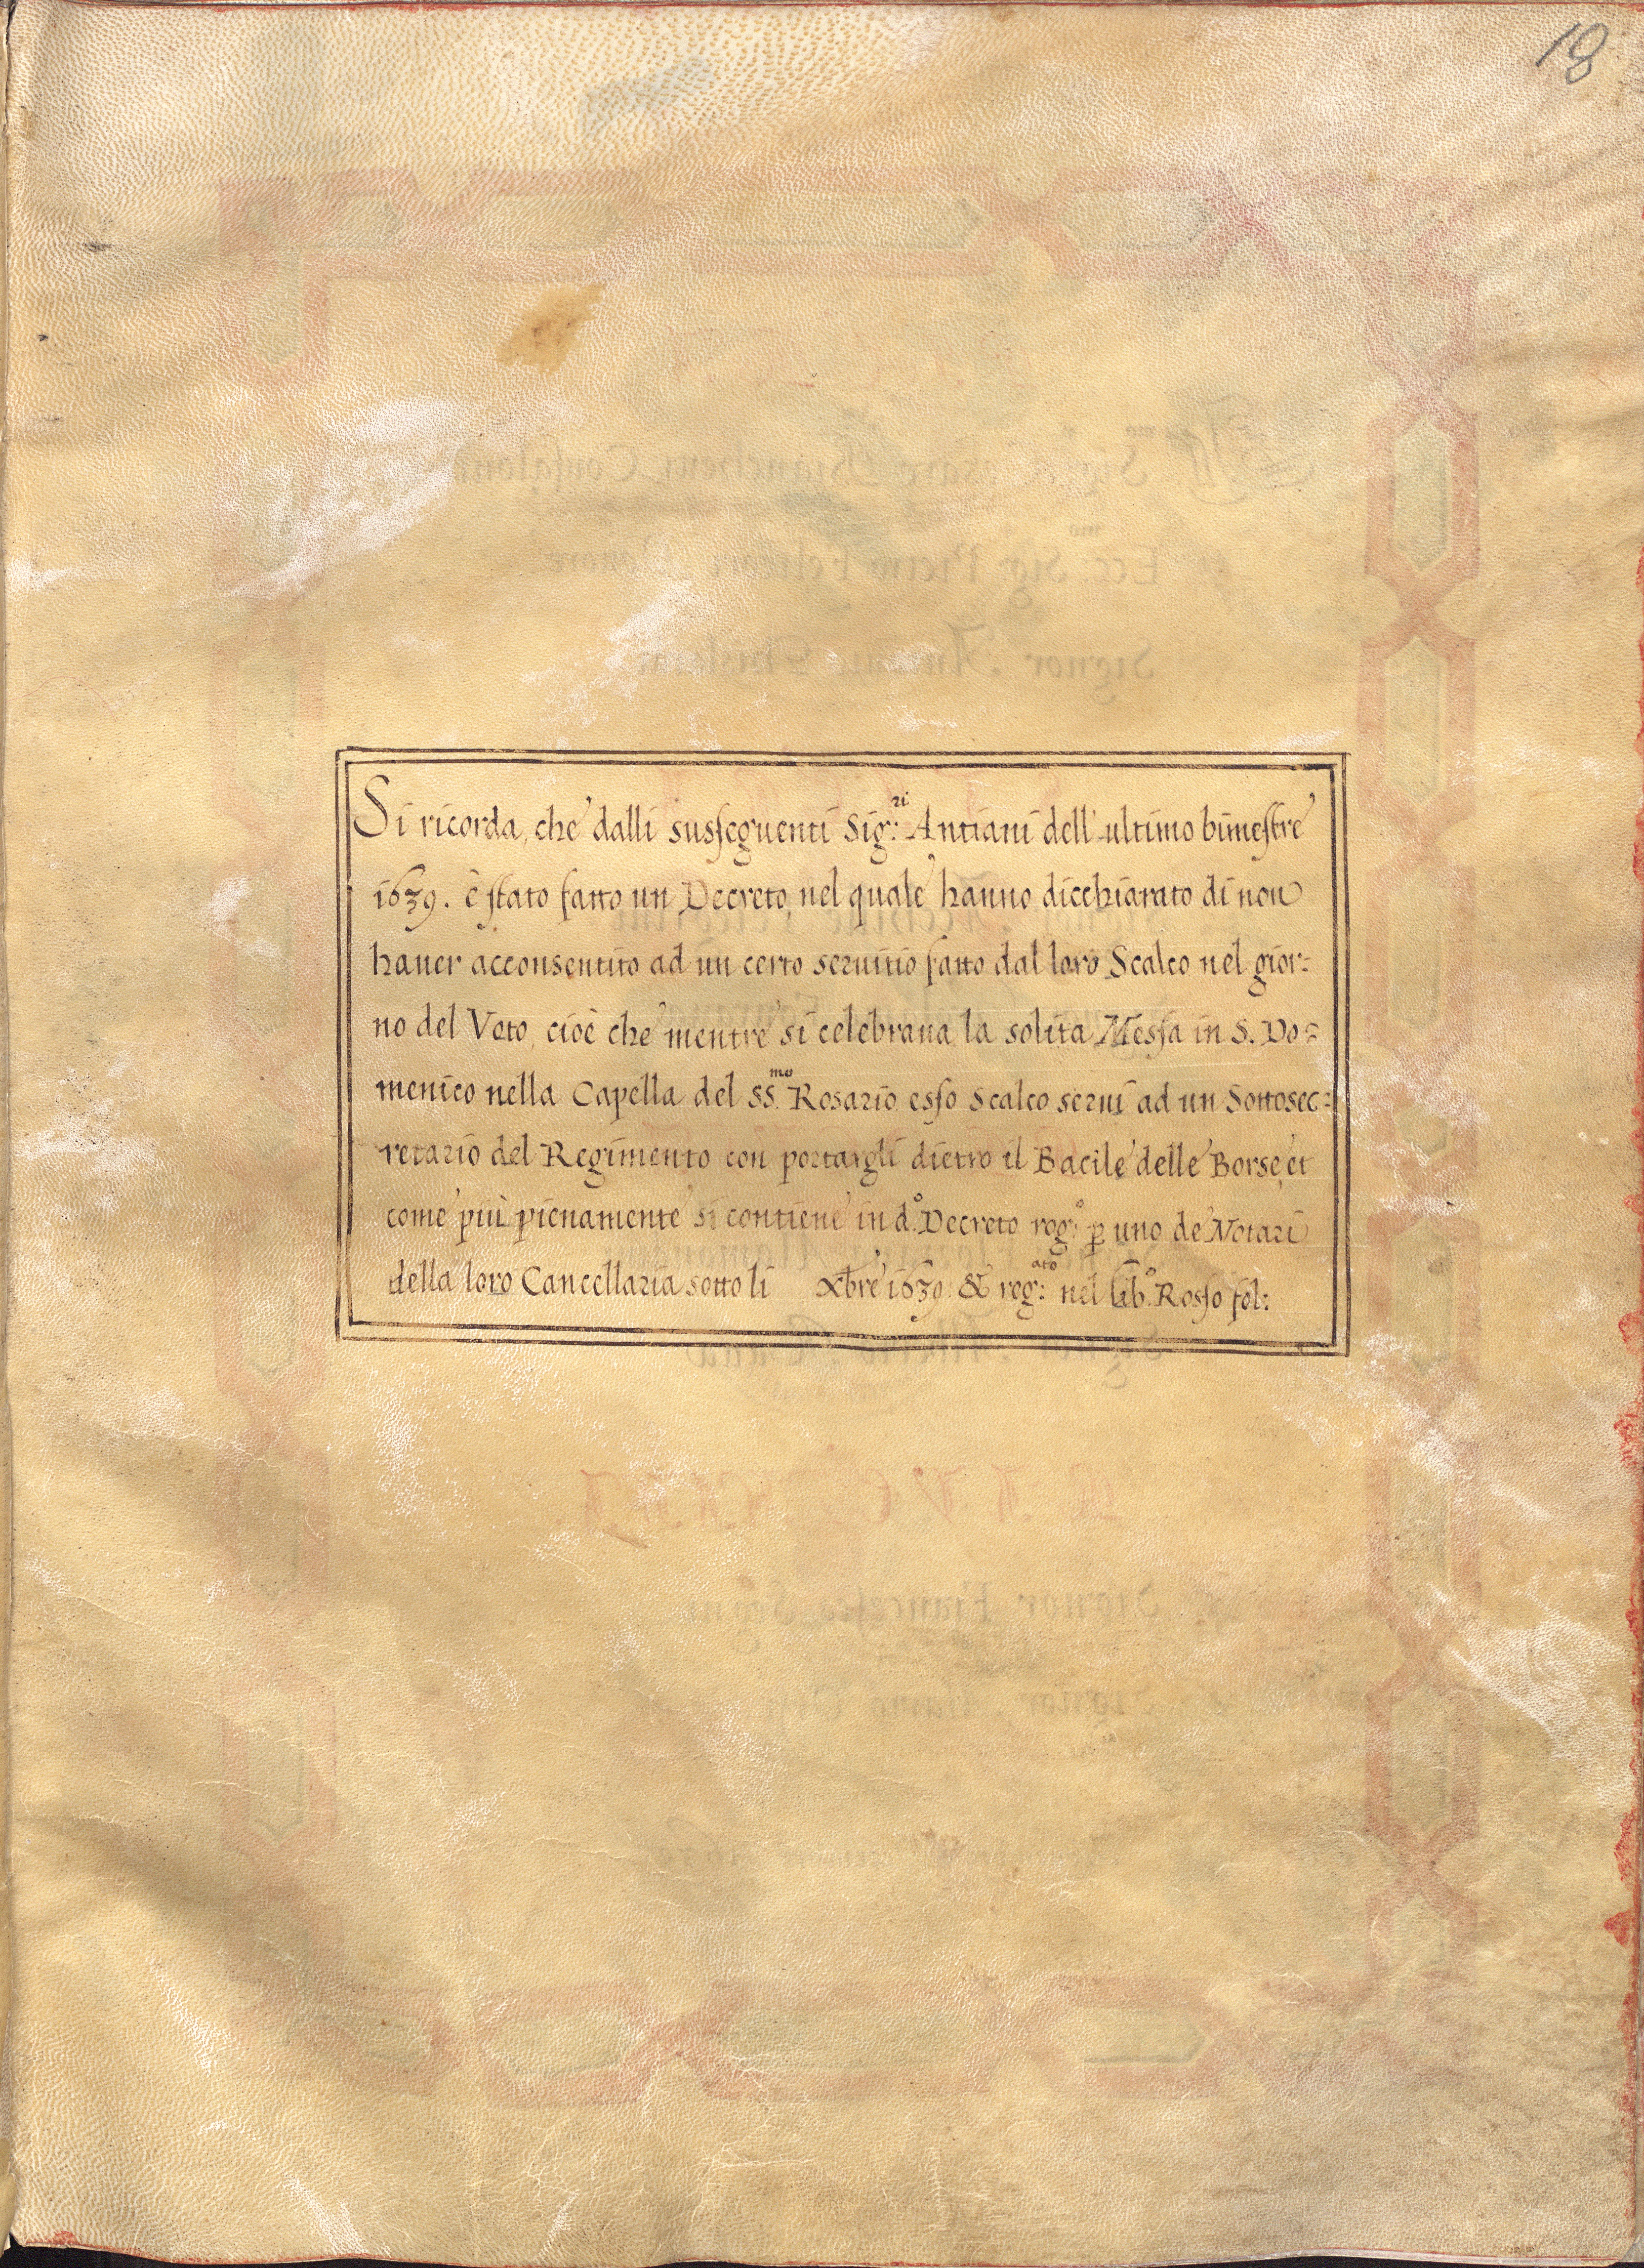 18
Si ricorda, che dalli sussequenti Sig:ri Antiani dell'ultimo bimestre
1639. è stato fatto un Decreto, nel quale hanno dicchiarato di non
hauer acconsentito ad un certo seruitio fatto dal loro Scalco nel gior=
no del Voto, cioè che mentre si celebraua la solita Messa in S. Do=
menico nella Capella del SS.mo Rosario esso Scalco seruì ad un Sottosec=
retario del Regimento con portargli dietro il Bacile delle Borse, et
come più pienamente si contiene in d.o Decreto rog:o p uno de Notari
della loro Cancellaria sotto li Xbre 1639. & reg:ato nel lib.o Rosso fol: